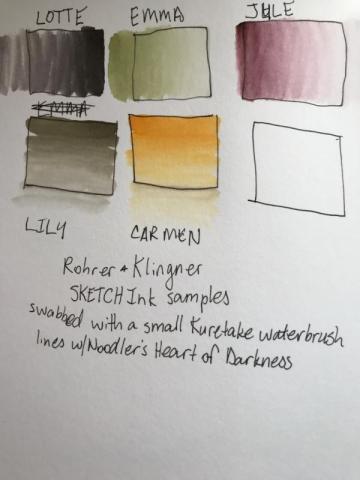 LOTTE EMMA JULE
EMMA
LILY CARMEN
Rohrer & Klingner
SKETCH Ink samples
swabbed with a small Kuretake waterbrush
lines w/Noodler's Heart of Darkness